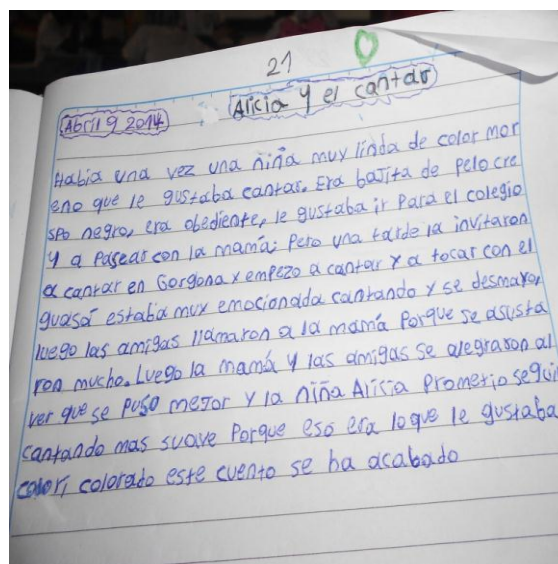 21
Alicia y el cantar
Abril 9 2014
Había una vez una niña muy linda de color mor
eno que le gustaba cantar. Era bajita de pelo cre
spo negro, era obediente, le gustaba ir para el colegio
y a pasear con la mamá; pero una tarde la invitaron
a cantar en Gorgona y empezo a cantar y a tocar con el
guasá estaba muy emocionada cantando y se desmayo,
luego las amigas llamaron a la mamá porque se asusta
ron mucho. Luego la mamá y las amigas se alegraron al
ver que se puso mejor y la niña Alicia prometio seguir
cantando mas suave porque eso era lo que le gustaba
colori, colorado este cuento se ha acabado